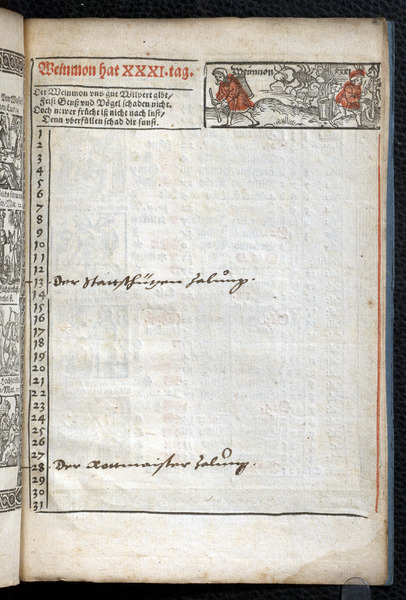 Weinmon hat XXXI. tag.
Der Weinmon vns gut Wilpert gibt/
Feiste Genß vnd Vögel schaden nicht.
Doch newer frücht iß nicht nach lust/
Denn vberfüllen schad dir sunst.
Weinmon
1
2
3
4
5
6
7
8
9
10
11
12
13 Der Stattschützen zalung.
14
15
16
17
18
19
20
21
22
23
24
25
26
27
28 Der Rottmaister zalung.
29
30
31